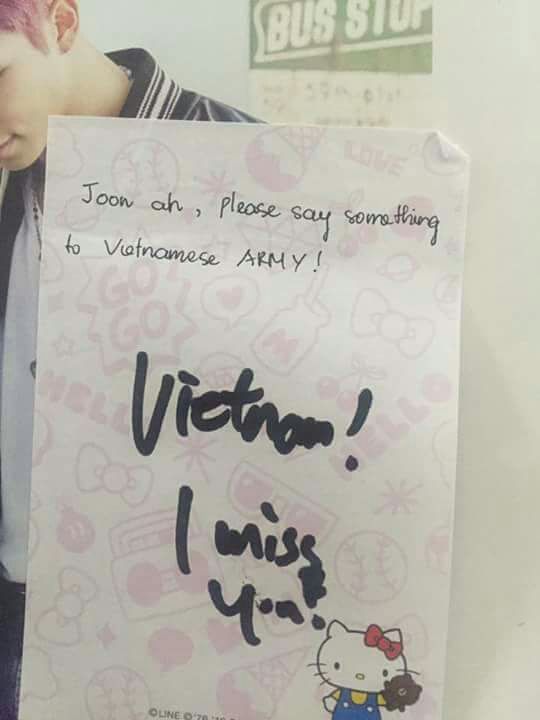 BUS STOP
LOVE
Joon ah, please say something
to Vietnamese ARMY!
GO
GO
HELLO
HELLO
Vietnam!
I miss
you!
©LINE ©'76